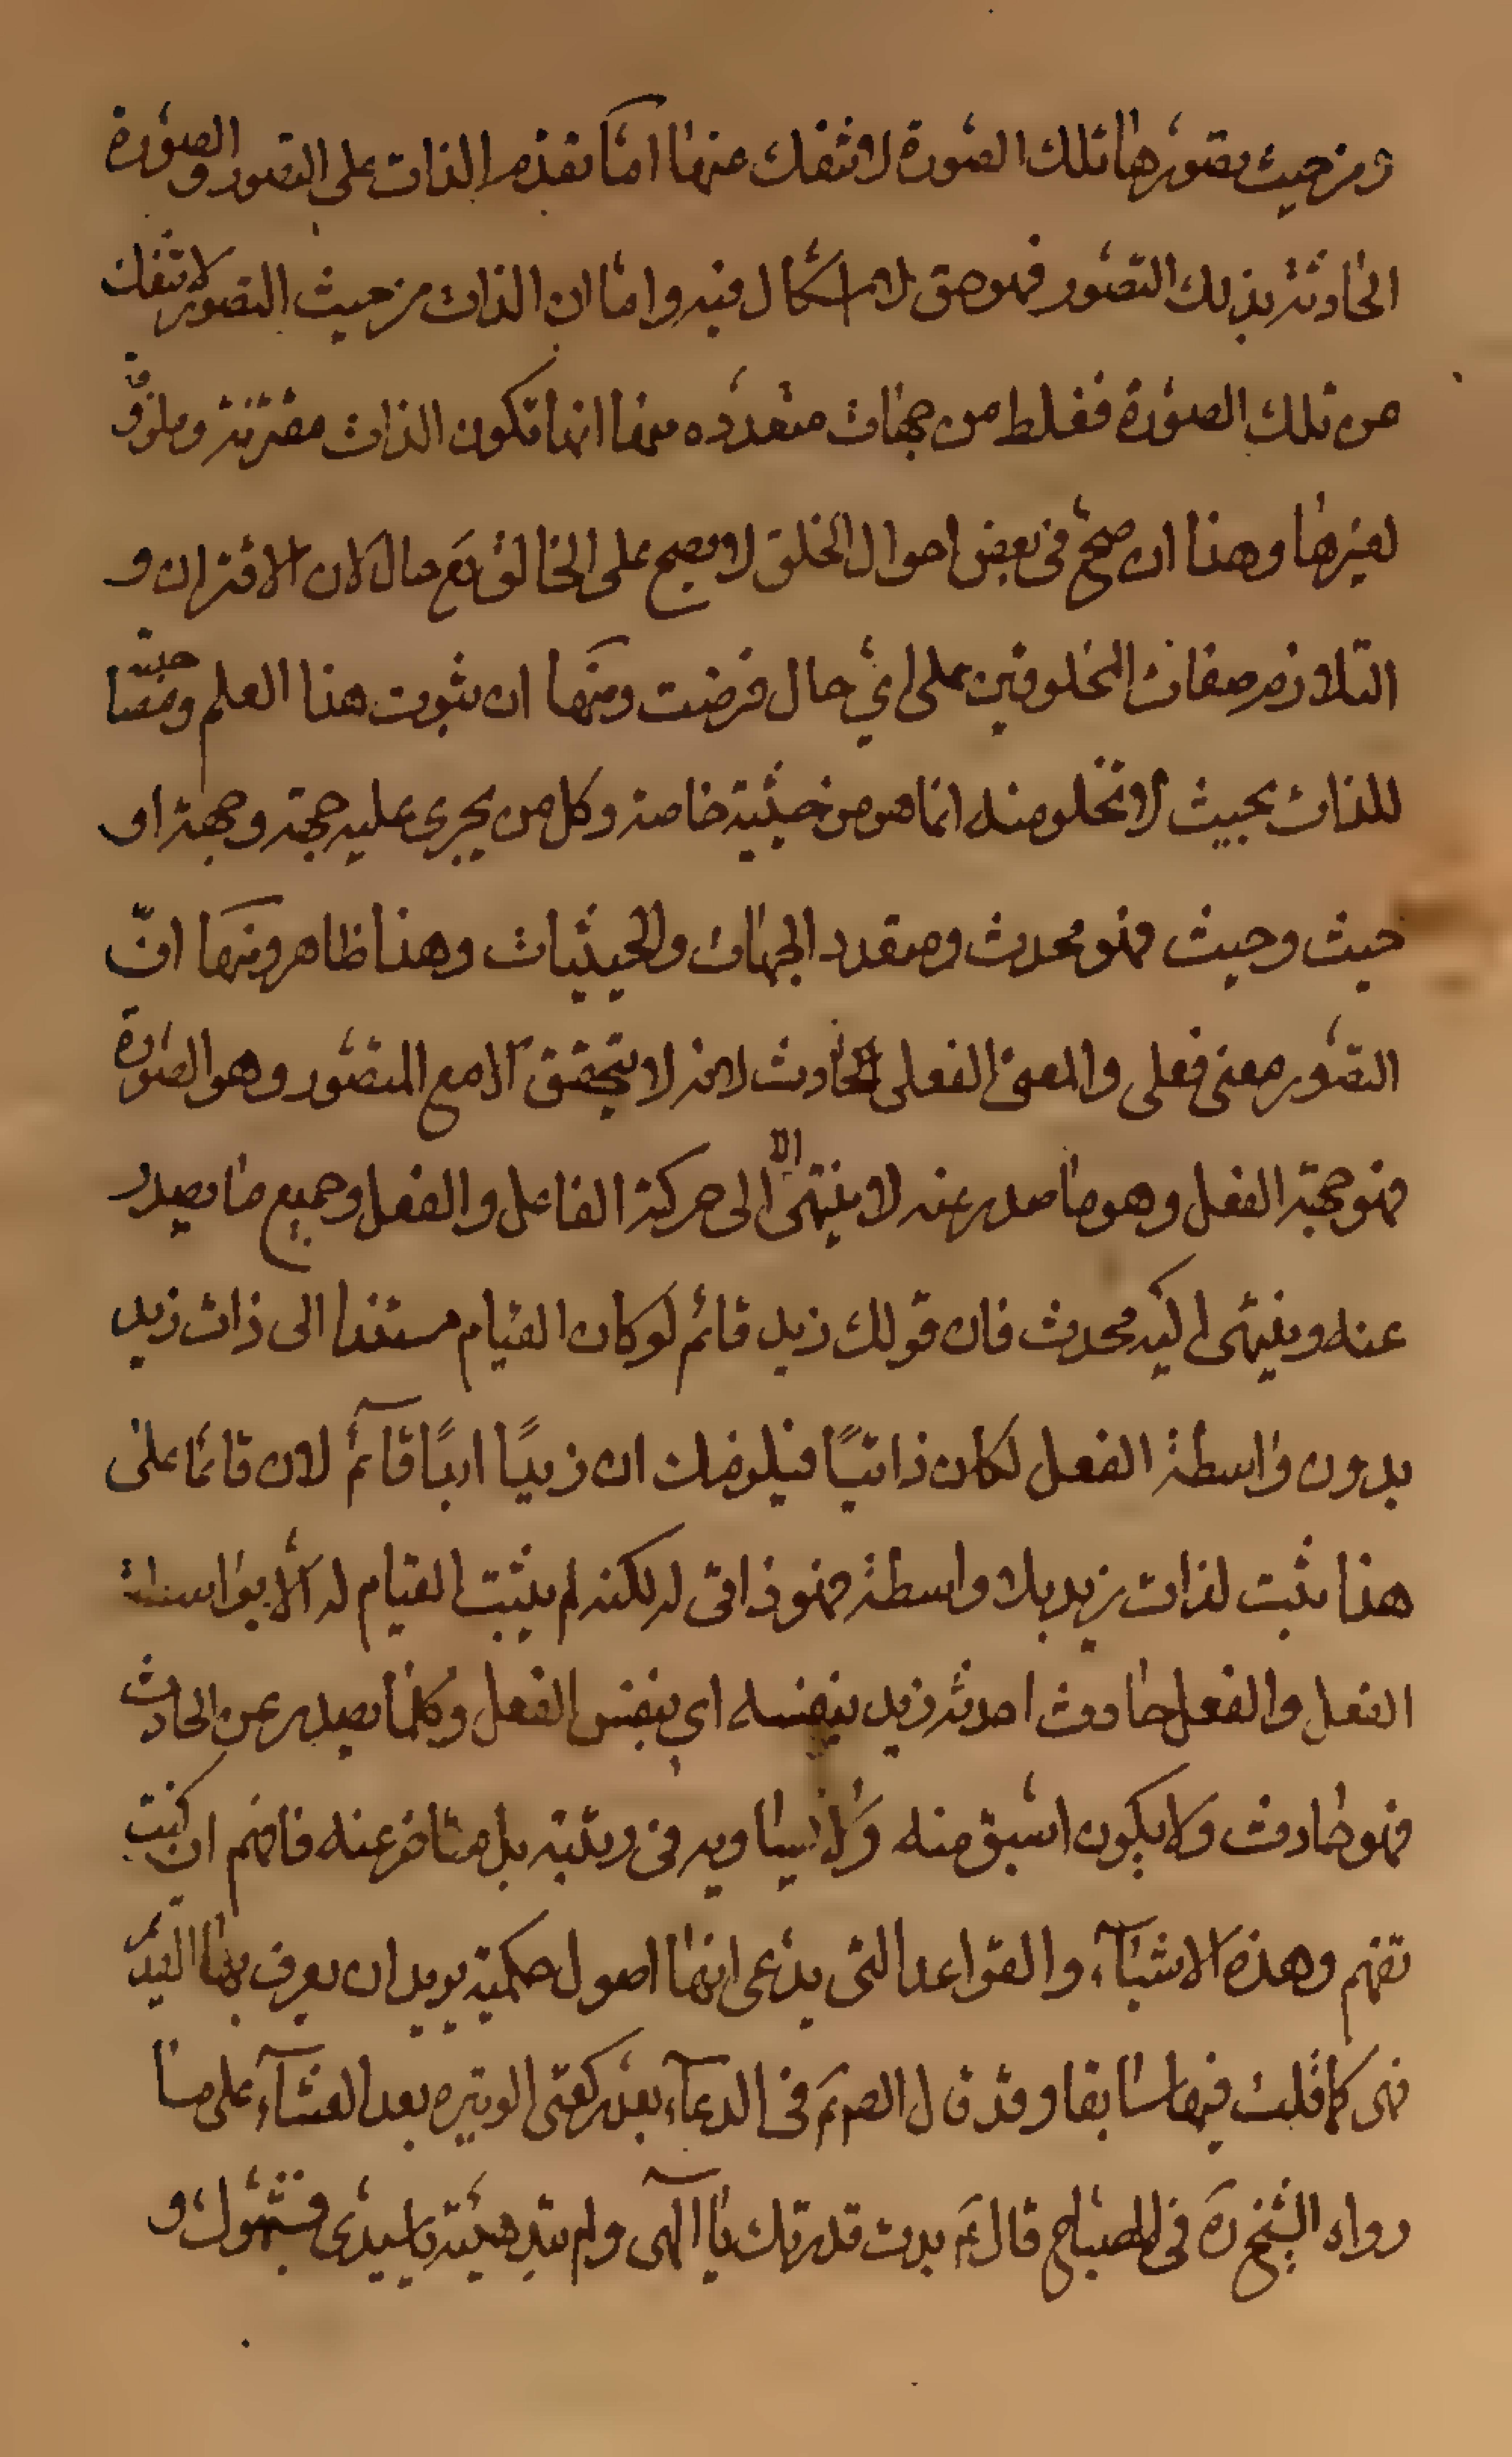 ومن حيث تصورها تلك الصورة لا تنفك عنها اما تقدم الذات على التصور والصورة
الحادثة بذلك التصور فهو حق لا اشكال فيه واما ان الذات من حيث التصور لا تنفك
من تلك الصورة فغلط من جهات متعدده منها انها تكون الذات مقترنة وملزوقة
لغيرها وهذا ان صح في بعض احوال الخلق لا يصح على الخالق بمع حال لان الاقتران و
التلازم صفات المخلوقين على اي حال فرضت ومنها ان ثبوت هذا العلم ومصاحبته
للذات بحيث لا تخلو منه انما هو من حيثية خاصة وكل من يجرى عليه جهة وجهة او
حيث وحيث فهو محدث ومتعدد الجهات والحيثيات وهذا ظاهر ومنها انّ
التصور معنى فعلى والمعنى الفعلى حادث لانه لا يتحقق الا مع المتصور وهو الصورة
فهو جهة الفعل وهو ما صدر عنه لا ينتهى الا الى حركة الفاعل والفعل وجميع ما يصدر
عنه وينتهى اليه محدث فان قولك زيد قائم لو كان القيام مستندا الى ذات زيد
بدون واسطة الفعل لكان ذاتيًا فيلزمك ان زيدًا ابدًا قآئم لان قائما على
هذا يثبت لذات زيد بلا واسطة فهو ذاتى له لكنه لم يثبت القيام له الا بواسطة
الفعل والفعل حادث احدثه زيد بنفسه اي بنفس الفعل وكلما يصدر عن الحادث
فهو حادث ولا يكون اسبق منه ولا يساويه فى رتبته بل متاخر عنه فافهم ان كنت
تفهم وهذه الاشيآء والقواعد التى يدعى انها اصول حكمية يريد ان يعرف بها القديم
فهى كما قلت فيها سابقا وقد قال الصم في الدعآء بعد ركعتى الوتيره بعد العشآء على ما
رواه الشيخ ره فى المصباح قال ع بدت قدرتك يا الهى ولم تبد هيئة يا سيدى فشبهوك و